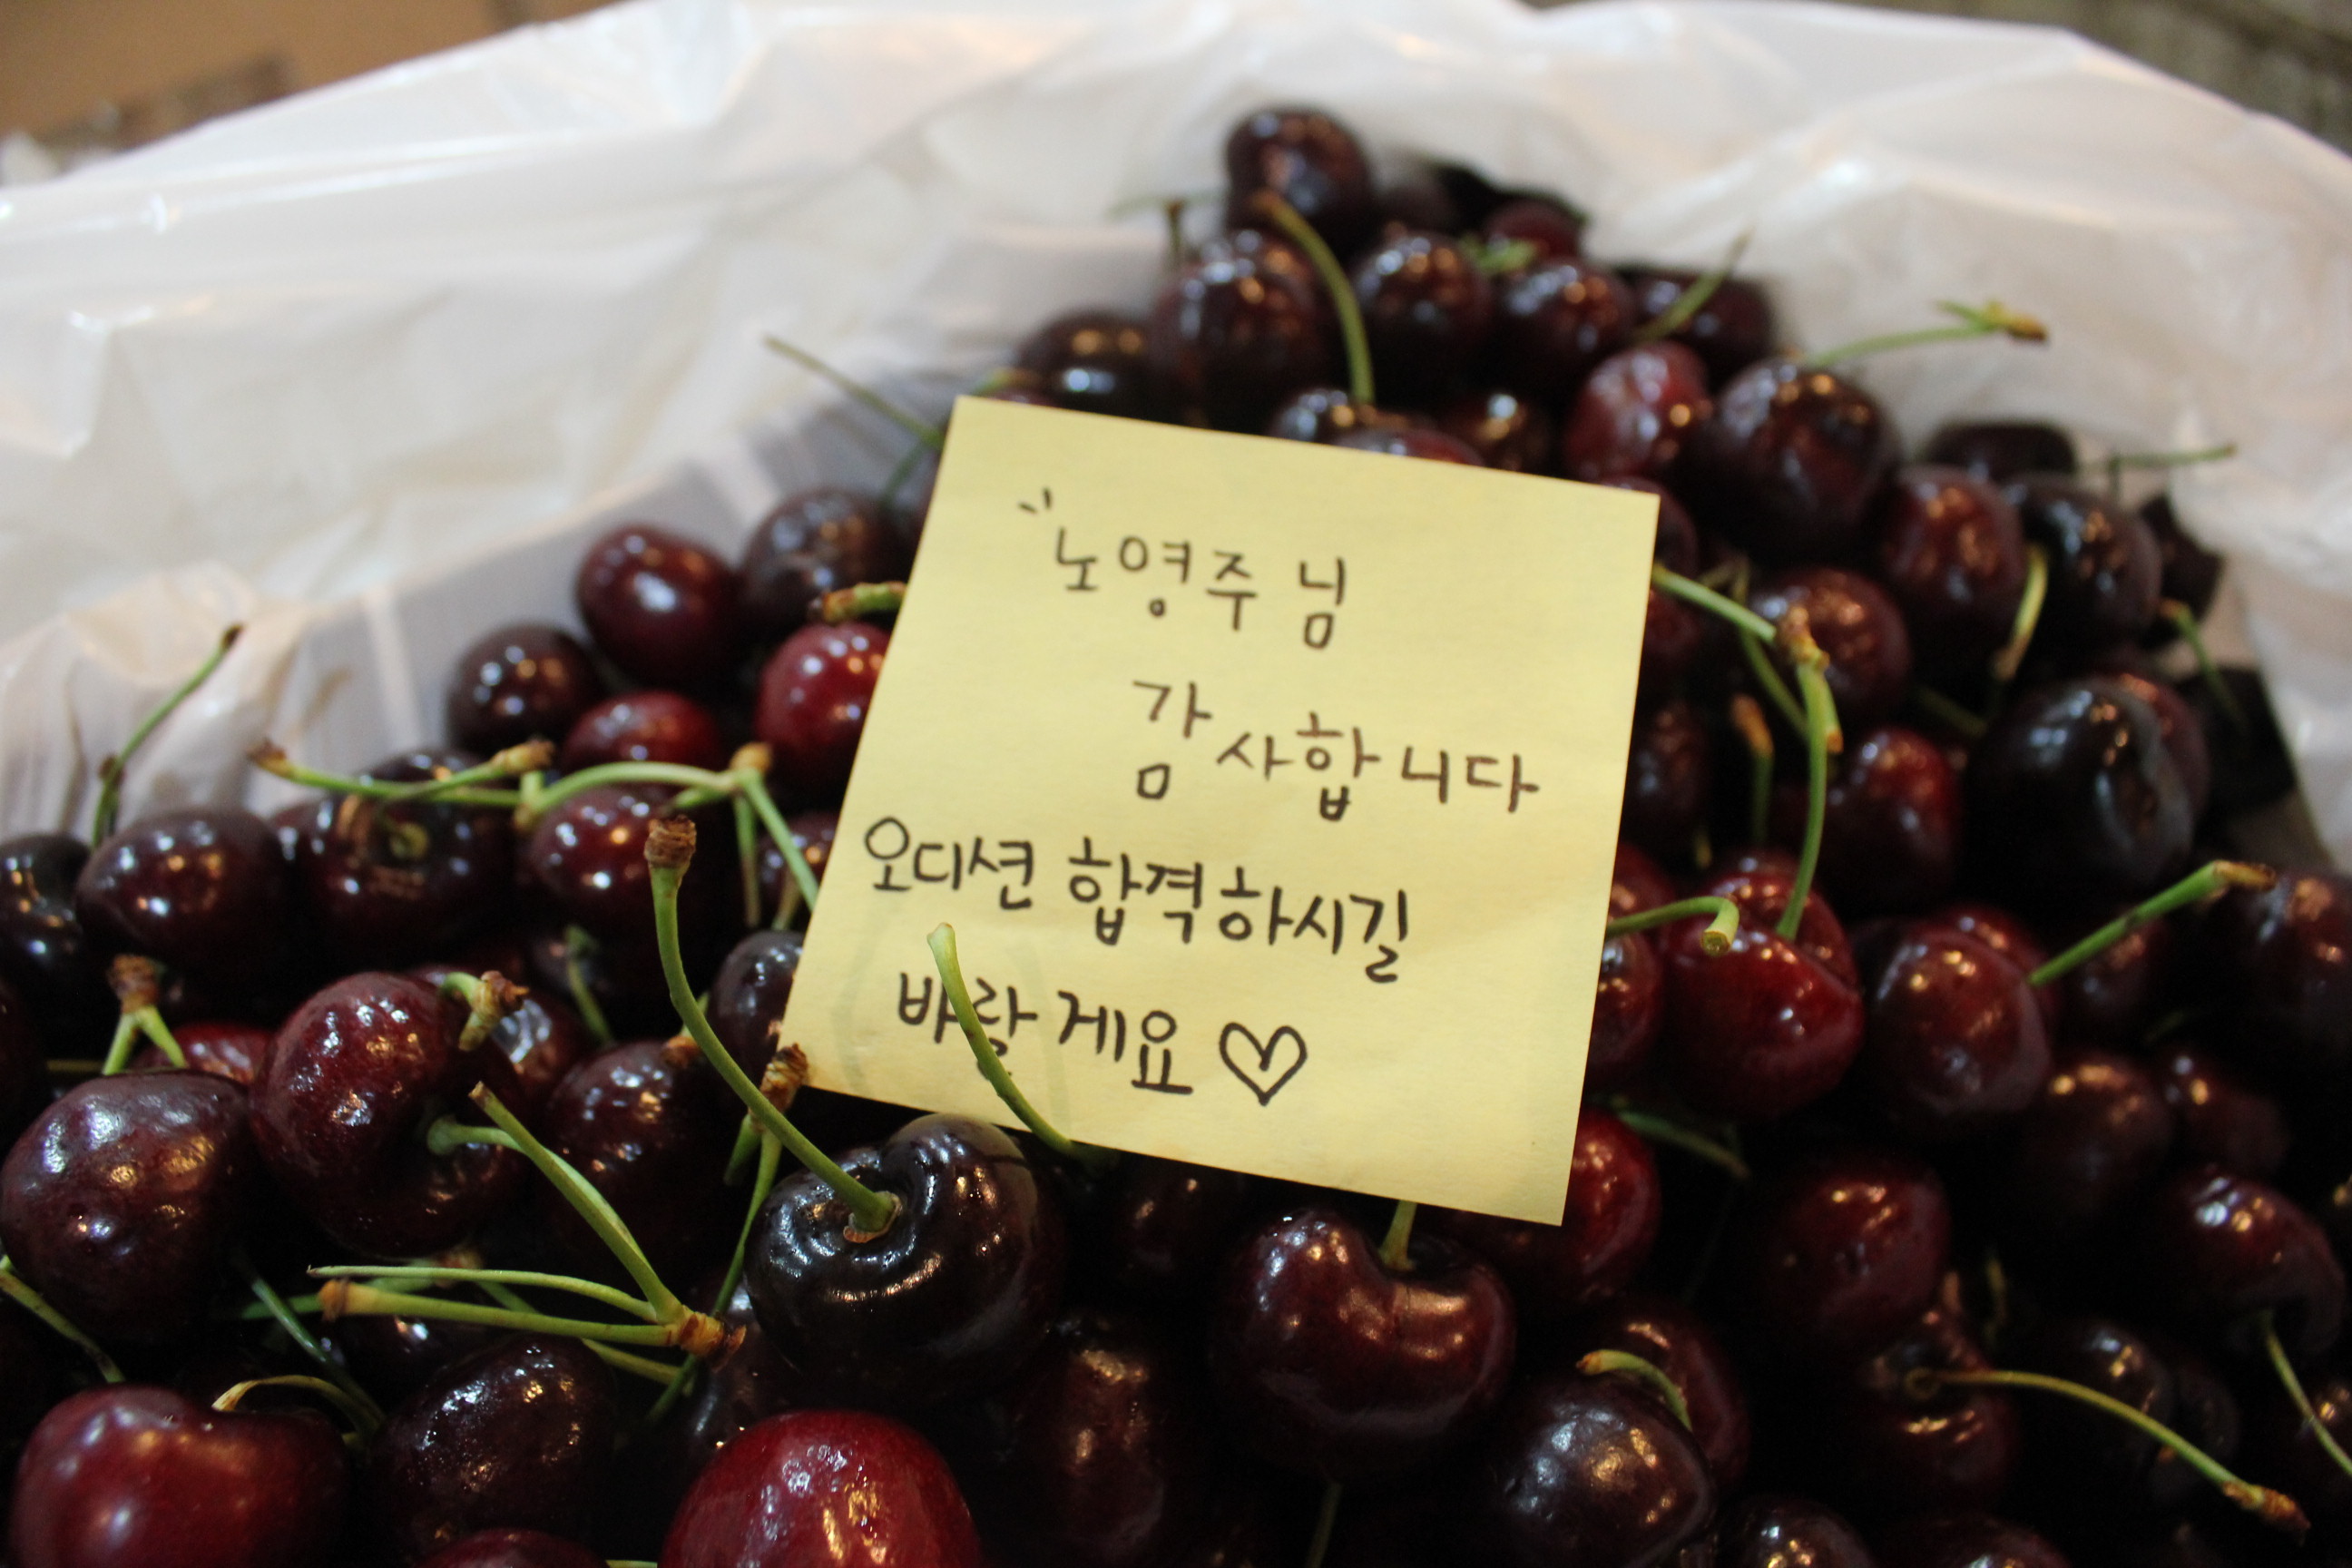 노영주님
감사합니다
오디션 합격하시길
바랄게요♡